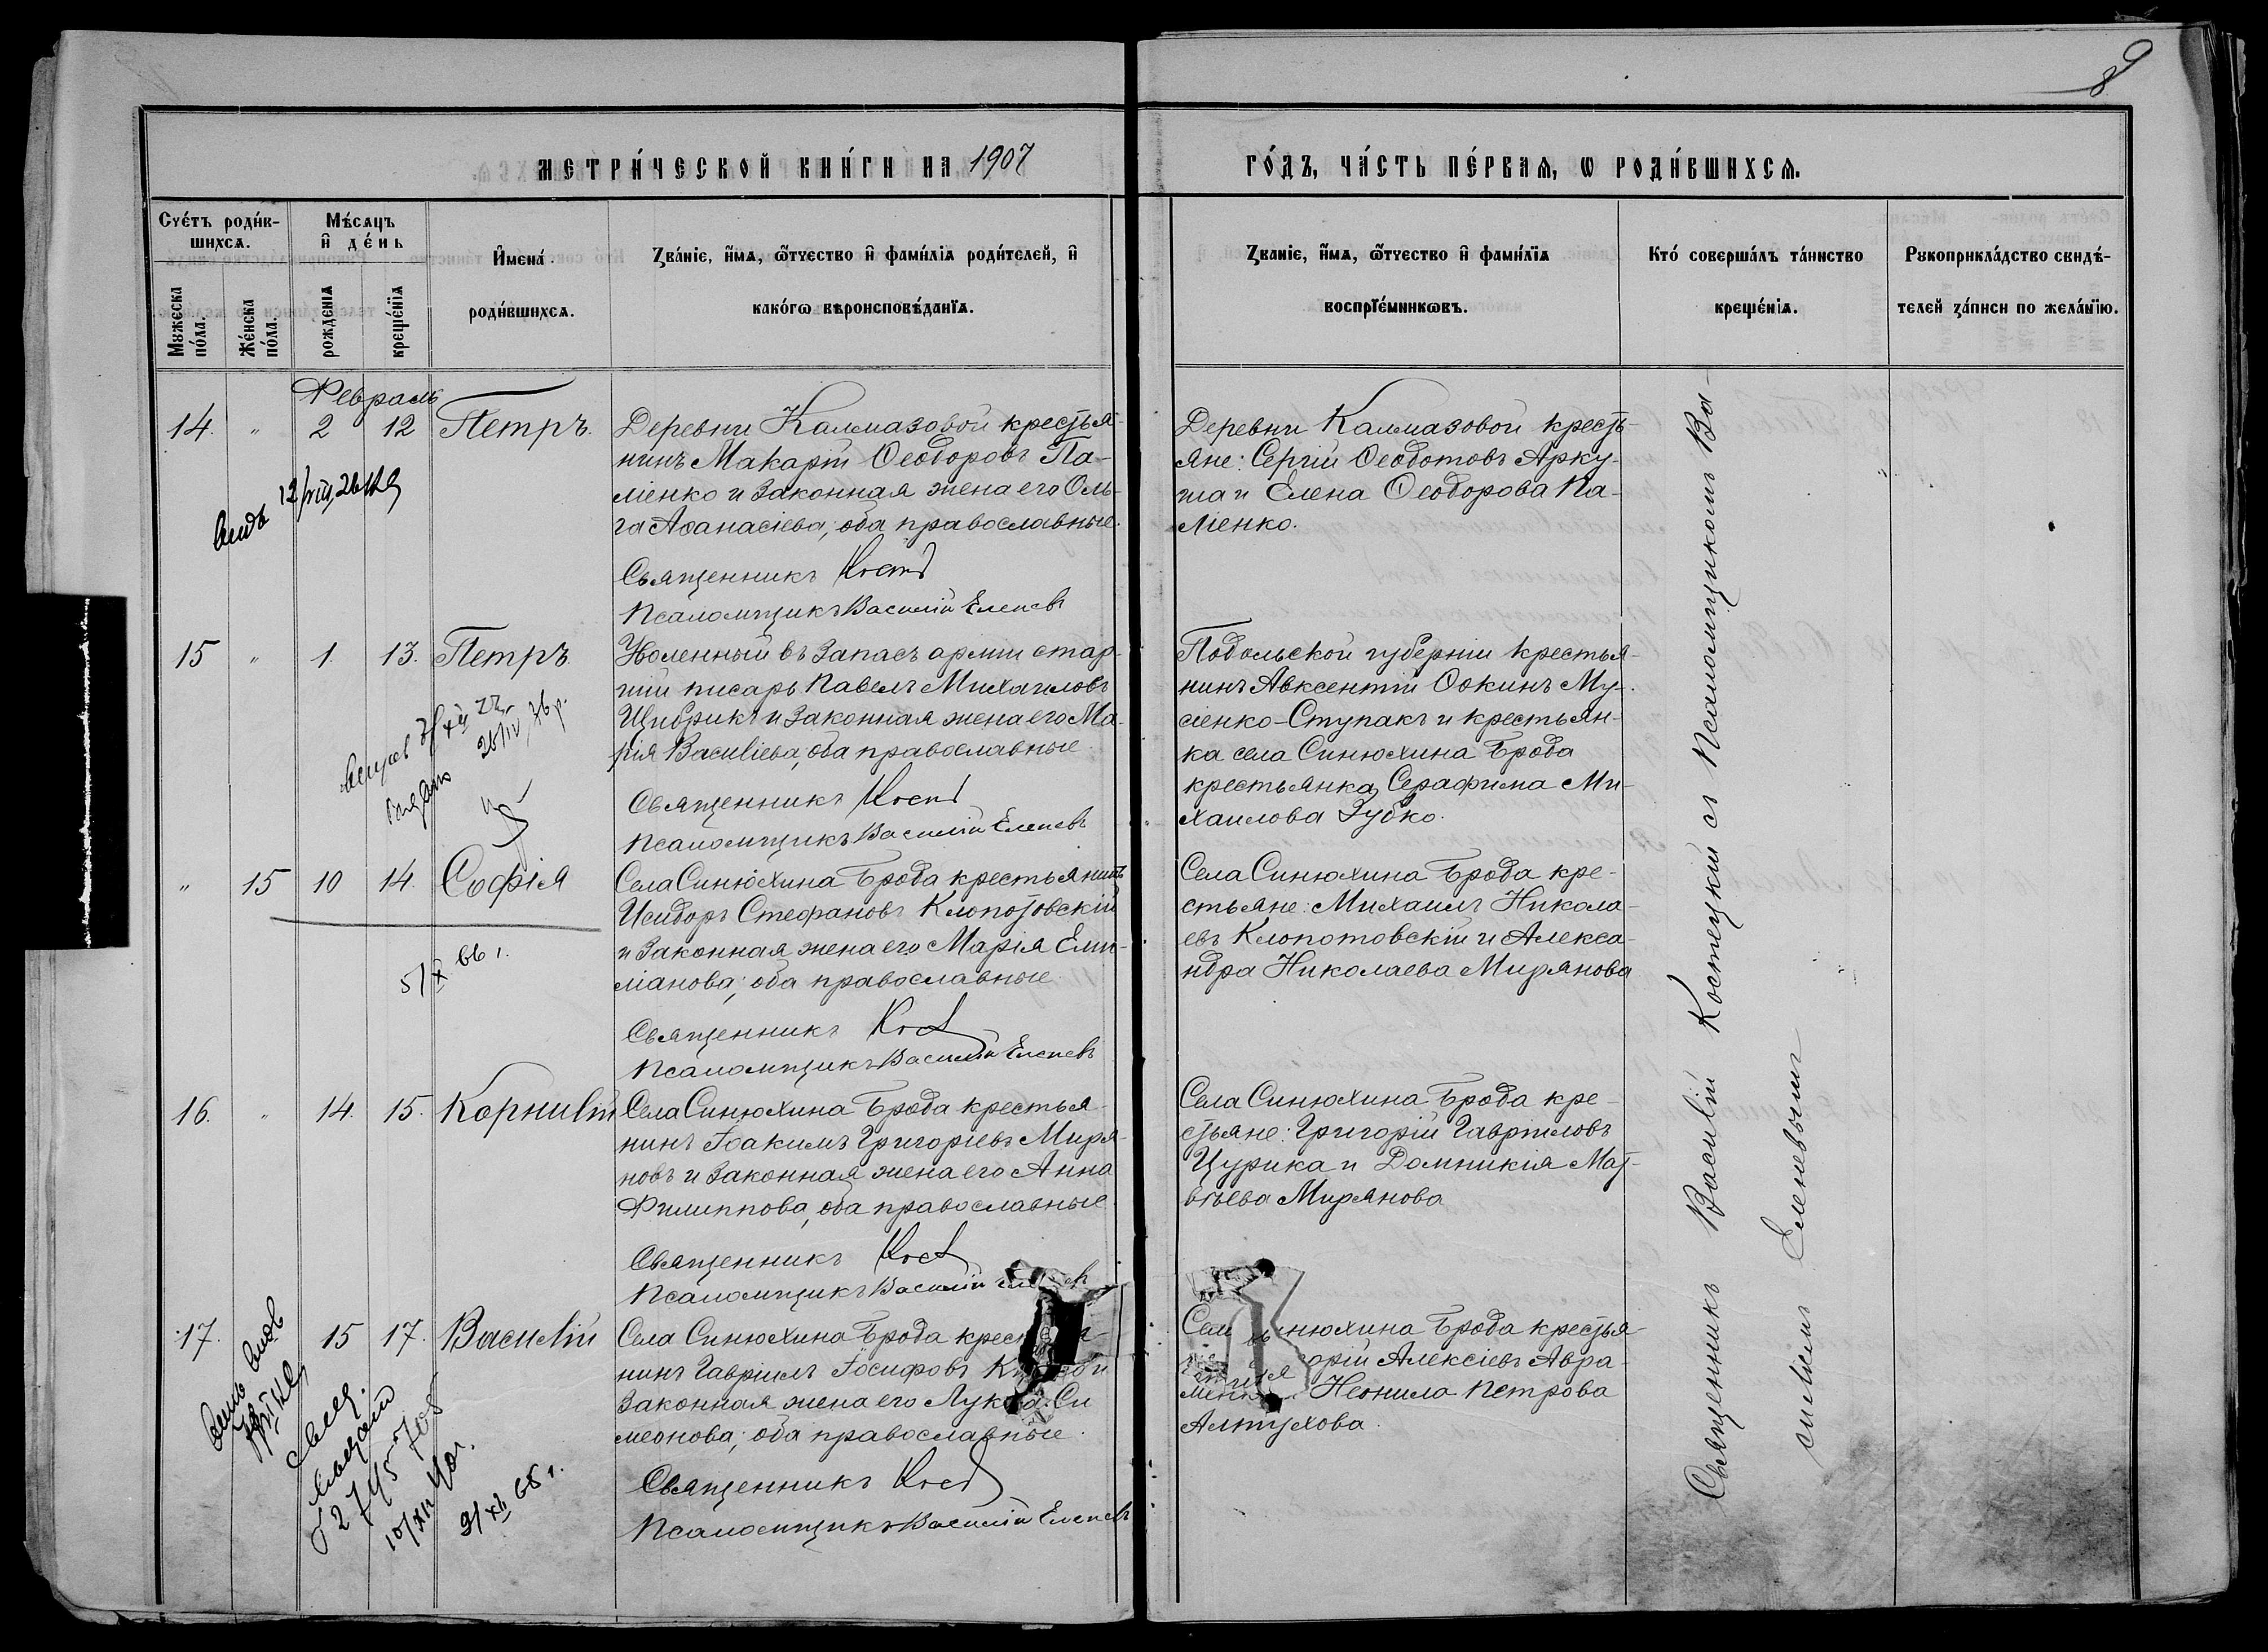 89
МЕТРИ́ЧЕСКОЙ КНИ́ГИ НА 1907
ГО́ДЪ, ЧА́СТЬ ПЕ́РВАѦ, Ѡ РОДИ́ВШИХСѦ.
Счéтъ роди́в-
шихсѧ.
Мꙋжеска по́ла.
Же́нска по́ла.
Мѣ́сѧцъ
и҆ де́нь
рожде́нїѧ
креще́нїѧ
И҆мена́
роди́вшихсѧ.
Зва́нїе, и҆́мѧ, ѻ҆́тчество и҆ фами́лїѧ роди́телей, и҆
како́гѡ вѣроисповѣ́данїѧ.
Зва́нїе, и҆́мѧ, ѻ҆́тчество и҆ фами́лїѧ
воспрїе́мникѡвъ.
Кто́ соверша́лъ та́инство
креще́нїѧ.
Рꙋкоприкла́дство свидѣ́-
телей за́писи по жела́нїю.
Февраль
14. " 2 12 Петръ.
Деревни Калмазовой крестья-
нинъ Макарій Ѳеодоровъ Па-
ліенко и законная жена его Оль-
га Аѳанасіева, оба православные.
Священникъ Кост
Псаломщикъ Василій Еленевъ
Деревни Калмазовой кресть-
яне: Сергій Ѳеодотовъ Арку-
ша и Елена Ѳеодорова Па-
ліенко.
15 " 1. 13. Петръ.
Уволенный въ запасъ арміи стар-
шій писарь Павелъ Михаиловъ
Щибрикъ и законная жена его Ма-
рія Василіева, оба православные
Священникъ Кост
Псаломщикъ Василій Еленевъ
Подольской губерніи крестья-
нинъ Авксентій Ѳокинъ Му-
сіенко-Ступакъ и крестьян-
ка села Синюхина Брода
крестьянка Серафима Ми-
хаилова Зубко.
" 15 10 14. Софія
Села Синюхина Брода крестьянинъ
Исидоръ Стефановъ Клопотовскій
и законная жена его Марія Еми-
ліанова, оба православные
5/X 66 г.
Священникъ Кост
Псаломщикъ Василій Еленевъ
Села Синюхина Брода кре-
стьяне: Михаилъ Никола-
евъ Клопотовскій и Алекса-
ндра Николаева Мирянова
16. " 14. 15. Корнилій
Села Синюхина Брода крестья-
нинъ Іоакимъ Григоріевъ Миря-
новъ и законная жена его Анна
Филиппова, оба православные
Священникъ Кост
Псаломщикъ Василій
Села Синюхина Брода кре-
стьяне: Григорій Гавриловъ
Цурика и Домникія Мат-
вѣева Мирянова
17. 15 17. Василій
Села Синюхина Брода
нинъ Гавріилъ Іосифовъ
законная жена его Си
меонова; оба православные.
9/XII 68 г.
Священникъ Кост
Псаломщикъ Василій Еленевъ
Брода крестья-
Алексіевъ Авра-
Неонила Петрова
Алтухова.
Священникъ Василій Костецкій съ Псаломщикомъ Ва-
силіемъ Еленевымъ